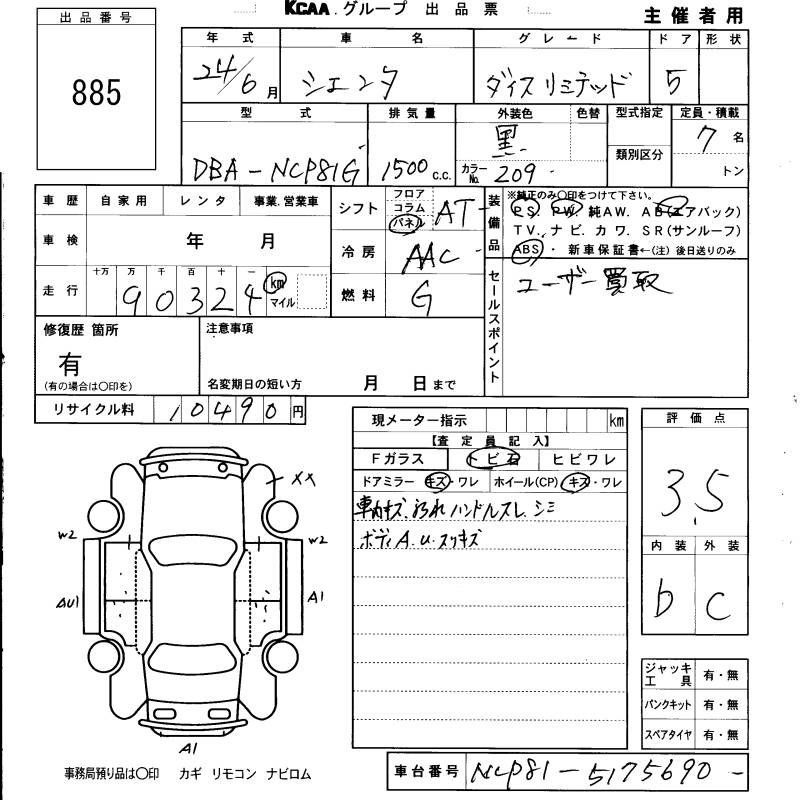 KCAA.グループ 出品票
主催者用
出品番号
885
年式 車名 グレード ドア 形状
24/6月 シエンタ ダイス リミテッド 5
型式 排気量 外装色 色替 型式指定 定員・積載
類別区分
DBA-NCP81G 1500 c.c. 黒 カラーNo. 209 7名
トン
車歴 自家用 レンタ 事業.営業車
車検 年 月
走行 十万 万 千 百 十 一
90324 km マイル
シフト フロア コラム パネル AT
冷房 AAC
燃料 G
装備品
※純正のみ〇印をつけて下さい。
PS PW 純AW. AB(エアバック)
TV. ナビ. カワ. SR(サンルーフ)
ABS ・ 新車保証書←(注)後日送りのみ
セールスポイント
ユーザー買取
修復歴 箇所
有
(有の場合は〇印を)
注意事項
名変期日の短い方 月 日まで
リサイクル料 10490円
現メーター指示 km
【査定員記入】
Fガラス トビ石 ヒビワレ
ドアミラー キズ・ワレ ホイール(CP) キズ・ワレ
車内キズ.汚れ ハンドルスレ.シミ
ボディA.U.スリキズ
評価点
3.5
内装 外装
b C
ジャッキ工具 有・無
パンクキット 有・無
スペアタイヤ 有・無
XX
W2 W2
AU1 A1
A1
事務局預り品は〇印 カギ リモコン ナビロム
車台番号 NCP81-5175690